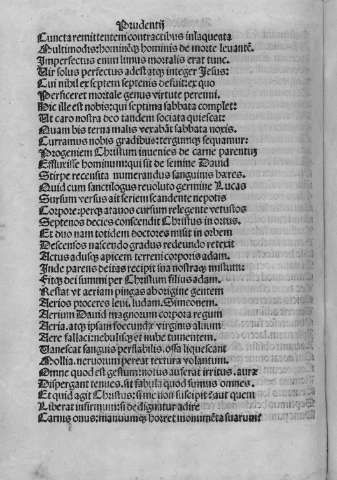 Prudentij
Cuncta remittentem contractibus inlaqueata
Multimodis: hominēq; hominis de morte leuantē.
Imperfectus enim limus mortalis erat tunc.
Uir solus perfectus adest atq; integer Jesus:
Cui nihil ex septem septenis defuit: ex quo
Perficeret mortale genus virtute perenni.
Hic ille est nobis: qui septima sabbata complet:
Ut caro nostra deo tandem sociata quiescat:
Quam bis terna malis vexabāt sabbata noxis.
Curramus nobis gradibus: tergumq; sequamur:
Progeniem Christum inuenies de carne parentū
Effluxisse hominum: qui sit de semine Dauid
Stirpe recensita numerandus sanguinis hæres.
Quid cum sanctilogus reuoluto germine Lucas
Sursum versus ait seriem scandente nepotis
Corpore: perq; atauos cursum relegente vetustos
Septenos decies conscendit Christus in ortus.
Et duo nam totidem doctores misit in orbem
Descensos nascendo gradus redeundo retexit
Actus adusq; apicem terreni corporis adam.
Inde parens deitas recipit sua nostraq; mistum:
Fitq; dei summi per Christum filius adam.
Restat vt aeriam pingas aborigine gentem
Aerios proceres leui, iudam. Simeonem.
Aerium Dauid magnorum corpora regum
Aeria. atq; ipsam foecundæ virginis aluum
Aere fallaci: nebulisq; et nube tumentem.
Uanescat sanguis perflabilis. ossa liquescant
Mollia. neruorum pereat textura volantum.
Omne quod est gestum: notus auferat irritus. auræ
Dispergant tenues. sit fabula quod sumus omnes.
Et quid agit Christus: si me non suscipit? aut quem
Liberat infirmum: si dedignatur adire
Carnis onus: manuumq; horret monumēta suarum?